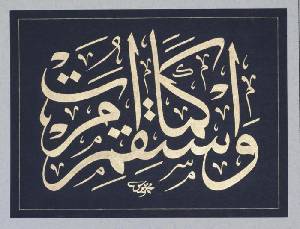 واستقم كما أمرت